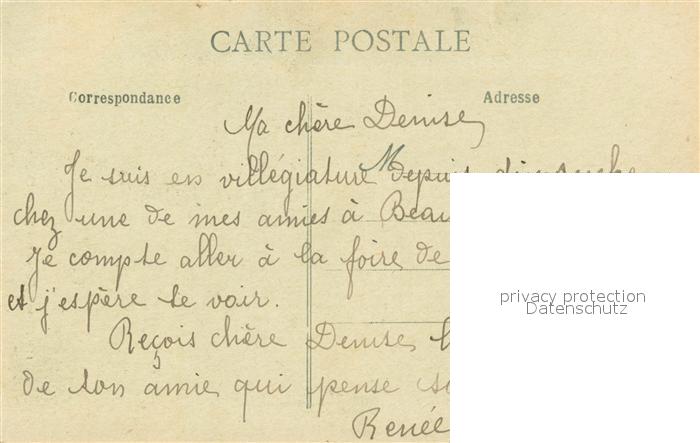 CARTE POSTALE
Correspondance
Adresse
Ma chère Denise,
Je suis en villégiature depuis dimanche
chez une de mes amies à Beau
Je compte aller à la foire de
et j'espère te voir.
privacy protection
Datenschutz
Reçois chère Denise,
de ton amie qui pense
Renée